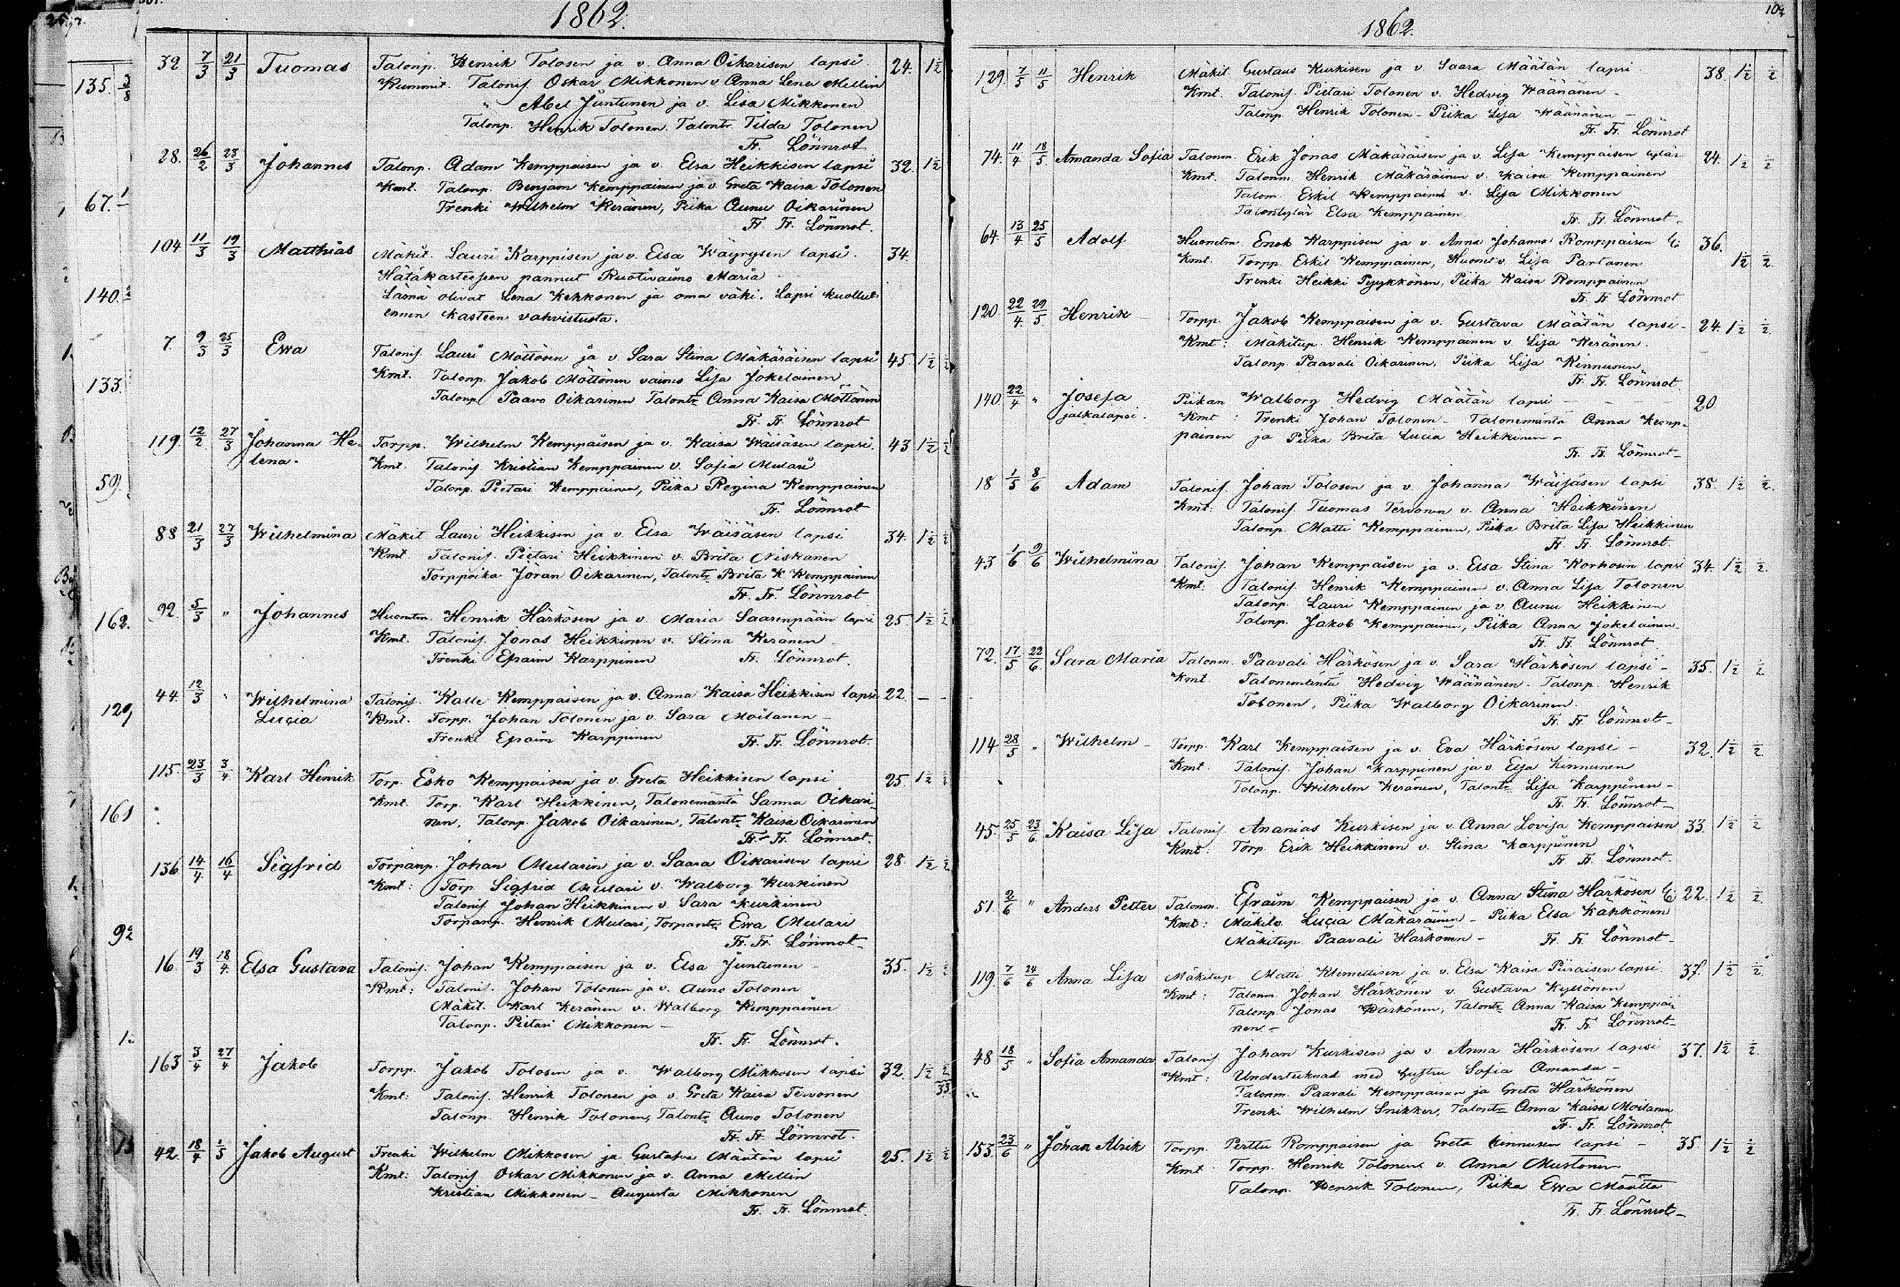 1862.
32 7/3 21/3 Tuomas Talonp. Henrik Tolosen ja v. Anna Oikarisen lapsi 24. 1½
Kummit. Talonis. Oskar Mikkonen v. Anna Lena Mellin
" Abel Juntunen ja v. Lisa Mikkonen
Talonp. Henrik Tolonen. Talontr. Tilda Tolonen
Fr. Lönnrot.
28. 26/2 23/3 Johannes Talonp. Adam Kemppaisen ja v. Elsa Heikkisen lapsi 32. 1½
Kmt. Talonp. Benjam Kemppainen ja v. Greta Kaisa Tolonen
Trenki Wilhelm Keränen, Piika Aunu Oikarinen
Fr. Fr. Lönnrot.
104 11/3 19/3 Matthias Mäkit. Lauri Karppisen ja v. Elsa Wäyrysen lapsi. 34.
Hätäkasteesen pannut Ruotivaimo Maria
Läsnä olivat Lena Kekkonen ja oma väki. Lapsi kuollut
ennen kasteen vahvistusta.
7. 9/3 25/3 Ewa Talonis. Lauri Möttösen ja v. Sara Stina Mäkäräisen lapsi 45 1½
Kmt. Talonp. Jakob Möttönen vaimo Lisa Jokelainen
Talonp. Paavo Oikarinen Talontr. Anna Kaisa Möttönen
Fr. Fr. Lönnrot
119. 12/2 27/3 Johanna He- Torpp. Wilhelm Kemppaisen ja v. Kaisa Wäisäsen lapsi. 43 1½ ½
lena. Kmt. Talonis. Kristian Kemppainen v. Sofia Mulari
Talonp. Pietari Kemppainen, Piika Regina Kemppainen
Fr. Lönnrot
88 21/3 27/3 Wilhelmina Mäkit Lauri Heikkisen ja v. Elsa Wäisäsen lapsi 34. 1½ ½
Kmt. Talonis. Pietari Heikkinen v. Brita Niskanen
Torppoika Jöran Oikarinen, Talontr. Brita K Kemppainen
Fr. Fr. Lönnrot
92 5/3 " Johannes Huonem. Henrik Härkösen ja v. Maria Saarenpään lapsi 25 1½ ½
Kmt. Talonis. Jonas Heikkinen v. Stina Keränen
Trenki Efraim Karppinen Fr. Lönnrot.
44. 12/3 " Wilhelmina Talonis. Kalle Kemppaisen ja v. Anna Kaisa Heikkisen lapsi 22 — —
Lucia Kmt. Torpp. Johan Tolonen ja v. Sara Moilanen —
Trenki Efraim Karppinen Fr. Fr. Lönnrot.
115. 23/3 3/4 Karl Henrik Torp. Esko Kemppaisen ja v. Greta Heikkisen lapsi 25. 1½ ½
Kmt. Torp. Karl Heikkinen, Talonemäntä Sanna Oikari-
nen, Talonp. Jakob Oikarinen, Talontr. Kaisa Oikarinen
Fr. Fr. Lönnrot.
136 14/4 16/4 Sigfrid Torpanp. Johan Mularin ja v. Saara Oikarisen lapsi 28. 1½ ½
Kmt: Torp. Sigfrid Mulari v. Walborg Kurkinen
Talonis. Johan Heikkinen v. Sara Kurkinen
Torpanp. Henrik Mulari, Torpantr. Ewa Mulari
Fr. Fr. Lönnrot—
16. 19/3 18/4. Elsa Gustava Talonis. Johan Kemppaisen ja v. Elsa Juntunen — 35. 1½
Kmt: Talonis. Johan Tolonen ja v. Auno Tolonen
Mäkit. Karl Keränen v. Walborg Kemppainen
Talonp. Pietari Mikkonen —
Fr. Fr. Lönnrot.
163 3/4 27/4 Jakob Torpp. Jakob Tolosen ja v. Walborg Mikkosen lapsi 32. 1½ ½
Kmt: Talonis. Henrik Tolonen ja v. Greta Kaisa Tervonen
Talonp. Henrik Tolonen, Talontr. Auno Tolonen
Fr. Fr. Lönnrot.
42. 18/4 1/5 Jakob August Trenki Wilhelm Mikkosen ja Gustafva Määtän lapsi 25. 1½ ½
Kmt: Talonis Oskar Mikkonen ja v. Anna Mellin
Kristian Mikkonen — Augusta Mikkonen
Fr. Fr. Lönnrot.
135.
67.
140.
133.
59.
162.
129
161
92
102
1862.
129. 7/5 11/5 Henrik Mäkit. Gustaus Kurkisen ja v. Saara Määtän lapsi 38. 1½ ½
Kmt. Talonis. Pietari Tolonen v. Hedvig Wäänänen —
Talonp. Henrik Tolonen — Piika Lisa Wäänänen —
Fr. Fr. Lönnrot
74. 11/4 18/5 Amanda Sofia Talonm. Erik Jonas Mäkäräisen ja v. Lisa Kemppaisen tytär 24. 1½ ½
Kmt. Talonm. Henrik Mäkäräinen v. Kaisa Kemppainen
Talom. Eskil Kemppainen v. Lisa Mikkonen
Talontytär Elsa Kemppainen Fr. Fr. Lönnrot—
64. 13/4 25/5 Adolf Huonem. Enok Karppisen ja v. Anna Johanna Romppaisen l: 36.
Kmt. Torpp. Eskil Kemppainen, Huonem v. Lisa Partanen 1½ ½
Trenki Heikki Pyykkönen, Piika Kaisa Romppainen
Fr. Fr. Lönnrot
120 22/4. 29/5 Henrik Torpp. Jakob Kemppaisen ja v. Gustava Määtän lapsi— 24. 1½ ½
Kmt: Mäkitup. Henrik Kemppainen v. Lisa Keränen.
Talonp. Paavali Oikarinen, Piika Lisa Kinnunen
Fr. Fr. Lönnrot
140 22/4 " Josefa Piikan Walborg Hedvig Määtän lapsi — — — 20
jalkalapsi. Kmt: Trenki Johan Tolonen— Talonemäntä Anna Kemp-
painen ja Piika Brita Lucia Heikkinen —
Fr. Fr. Lönnrot—
18 1/5 8/6 Adam Talonis. Johan Tolosen ja v. Johanna Wäisäsen lapsi 38. 1½ ½.
Kmt: Talonis Tuomas Tervonen v. Anna Heikkinen
Talonp. Matti Kemppainen, Piika Brita Lisa Heikkinen
Fr. Fr. Lönnrot.
43 1/6 9/6 Wilhelmina Talonis. Johan Kemppaisen ja v. Elsa Stina Korhosen lapsi 34. 1½ ½.
Kmt. Talonis. Henrik Kemppainen v. Anna Lisa Tolonen
Talonp. Lauri Kemppainen ja v. Aunu Heikkinen
Talonp. Jakob Kemppainen, Piika Anna Jokelainen.
Fr. Fr. Lönnrot
72. 17/5 22/6 Sara Maria Talonm. Paavali Härkösen ja v. Sara Harkösen lapsi — 35. 1½ ½
Kmt Talonemäntä Hedvig Wäänänen— Talonp. Henrik
Tolonen, Piika Walborg Oikarinen.
Fr. Fr. Lönnrot—
114 28/5 " Wilhelm — Torpp. Karl Kemppaisen ja v. Eva Härkösen lapsi — 32. 1½ ½
Kmt Talonis. Johan Karppinen ja v. Elsa Kinnunen
Talonp. Wilhelm Keränen, Talontr. Lisa Karppinen —
Fr. Fr. Lönnrot—
45. 25/5 23/6 Kaisa Lisa Talonis Ananias Kurkisen ja v. Anna Lovisa Kemppaisen 33. 1½ ½
Kmt: Torp. Erik Heikkinen v. Stina Karppinen
Fr. Fr. Lönnrot.
51. 2/6 " Anders Petter Talonm. Efraim Kemppaisen ja v. Anna Stina Härkösen l: 22. 1½ ½
Kmt: Mäkitv. Lucia Mäkäräinen — Piika Elsa Kähkönen
Mäkitup. Paavali Härkönen — Fr. Fr. Lönnrot—
119. 7/6 24/6 Anna Lisa Mäkitup Matti Klemettisen ja v. Elsa Kaisa Piiraisen lapsi. 37. 1½ ½
Kmt: Talonm Johan Härkönen v. Gustava Kyllönen
Talonp Jonas Härkönen, Talontr. Anna Kaisa Kemppai-
nen — Fr. Fr. Lönnrot—
48 18/5 " Sofia Amanda Talonis Johan Kurkisen ja v Anna Härkösen lapsi 37. 1½ ½
Kmt: Undertecknad med hustru Sofia Amanda —
Talonm. Paavali Kemppainen ja Greta Härkönen
Trenki Wilhelm Snikker, Talontr. Anna Kaisa Moilanen
Fr. Fr. Lönnrot.
153. 23/6 " Johan Alrik Torpp. Perttu Romppaisen ja Greta Kinnusen lapsi — 35. 1½ ½
Kmt Torpp. Henrik Tolonen v. Anna Mustonen
Talonp. Henrik Tolonen, Piika Ewa Määttä
Fr. Fr. Lönnrot—